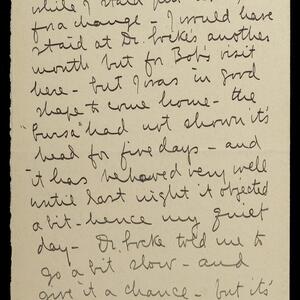 while I staid
for a change - I would have
staid at Dr. Locke's another
month but for Bob's visit
here - but I was in good
shape to come home - the
"bursa" had not shown it's
head for five days - and
it has behaved very well
until last night it objected
a bit - hence my quiet
day - Dr. Locke told me to
go a bit slow - and
give it a chance - but it's